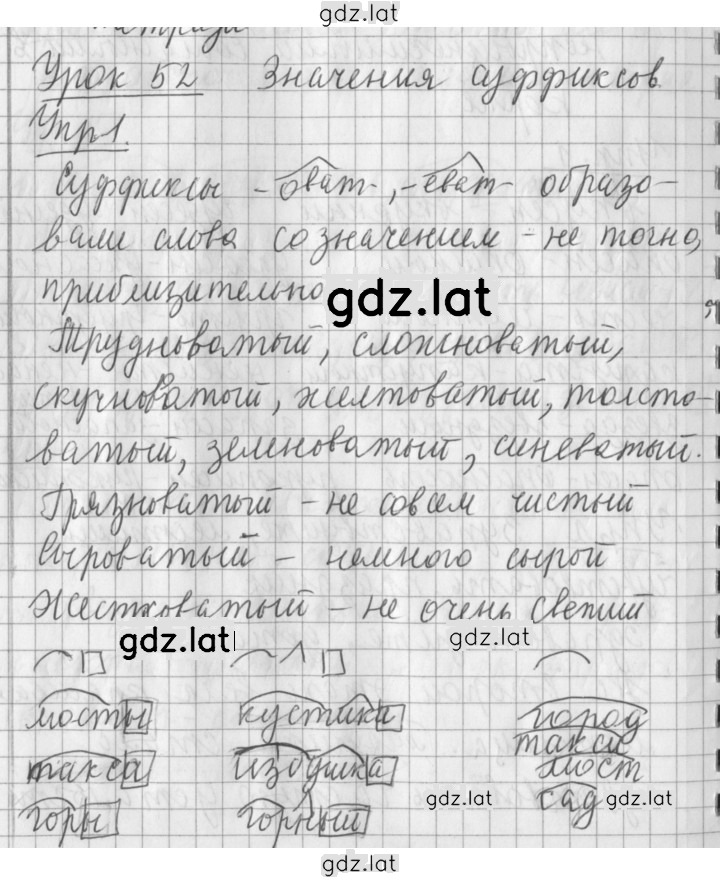 gdz.lat
Урок 52 Значения суффиксов
Упр1.
Суффиксы -оват-, -еват- образо-
вали слова со значением - не точно,
приблизительно
gdz.lat
Трудноватый, сложноватый,
скучноватый, желтоватый, толсто-
ватый, зеленоватый, синеватый.
Грязноватый - не совсем чистый
Сыроватый - немного сырой
Жестковатый - не очень свежий
gdz.lat gdz.lat
мосты кустика город
такси
такса избушка мост
горы горный сад
gdz.lat gdz.lat
gdz.lat